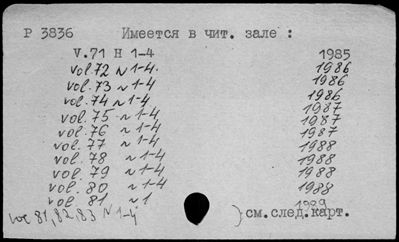 P 3836 Имеется в чит. зале :
V.71 N 1-4 1985
vol.72 N 1-4. 1986
vol.73 N 1-4 1986
vol.74 N 1-4 1986
vol.75 N 1-4 1987
vol.76 N 1-4 1987
vol.77 N 1-4 1987
vol.78 N 1-4 1988
vol.79 N 1-4 1988
vol.80 N 1-4 1988
vol.81 N 1 1989
vol 81,82,83 N 1-4 } см.след.карт.